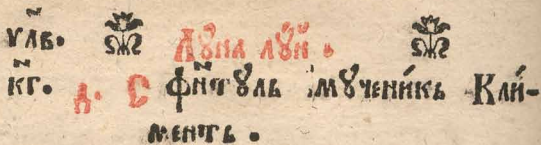 ул҃в. Лꙋна лꙋй.
кг҃. д. С фн҃тꙋль мꙋчени́кь Кли́-
менть.